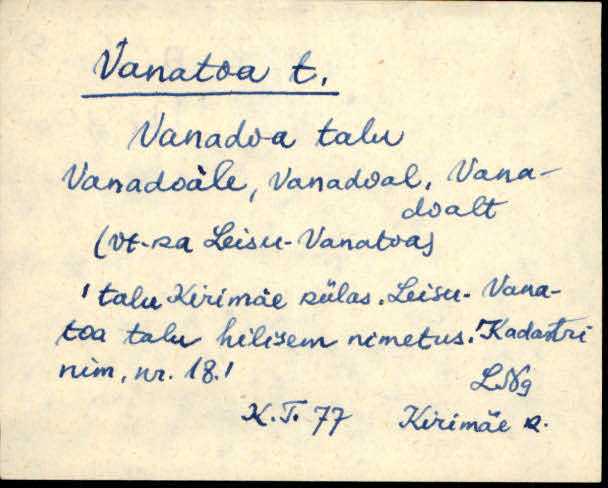 Vanatoa t.
Vanadoa talu
Vanadoàle, Vanadoal, Vana-
doalt
(vt. ka Leisu-Vanatoa)
'talu Kirimäe külas. Leisu-Vana-
toa talu hilisem nimetus. Kadastri
nim. nr. 18.'
LNg
K.T. 77 Kirimäe k.